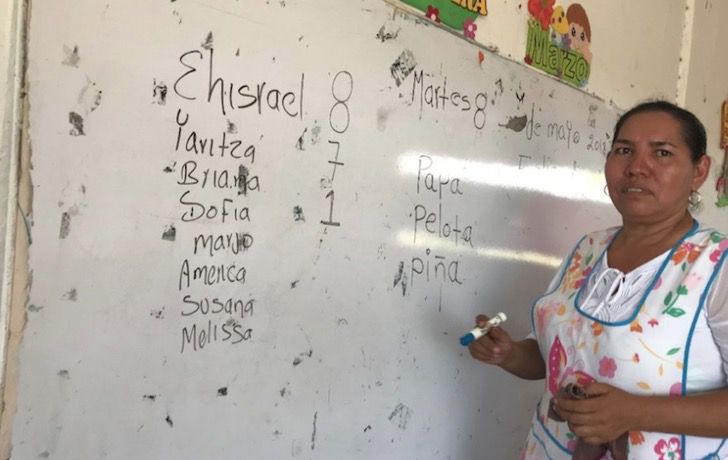 Ehisrael 8
Yaritza 7
Briana
Sofia 1
marjo
America
Susana
Melissa
Martes 8 de mayo 2018
Papa
Pelota
piña
Marzo